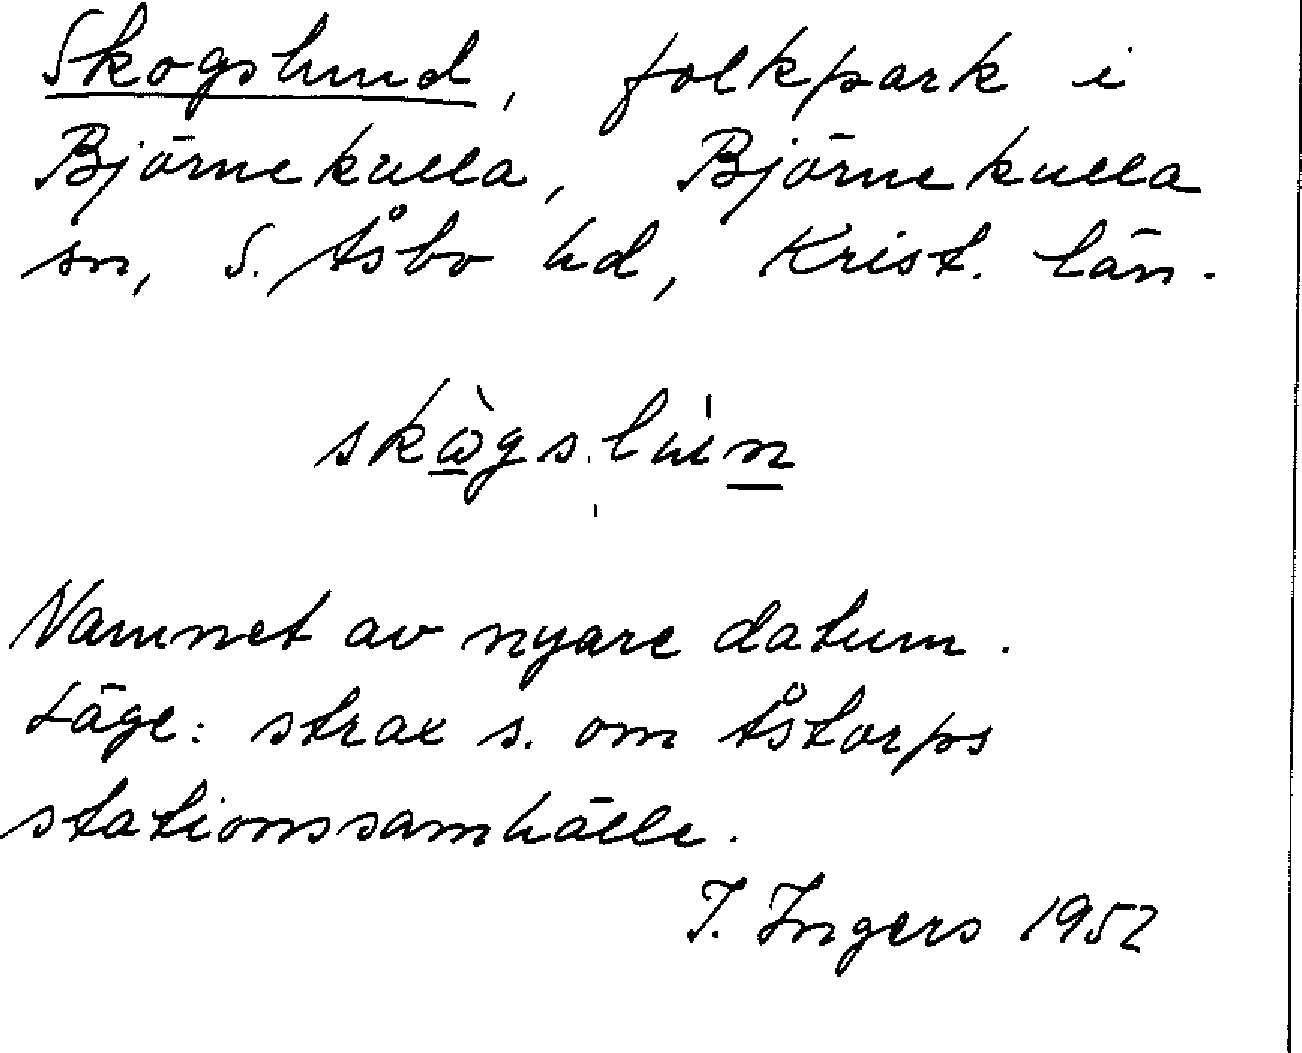 Skogslund, folkpark i
Björnekulla, Björnekulla
sn, S. Åsbo hd, Krist. län.
Namnet av nyare datum.
Läge: strax s. om Åstorps
stationssamhälle.
I. Ingers 1952